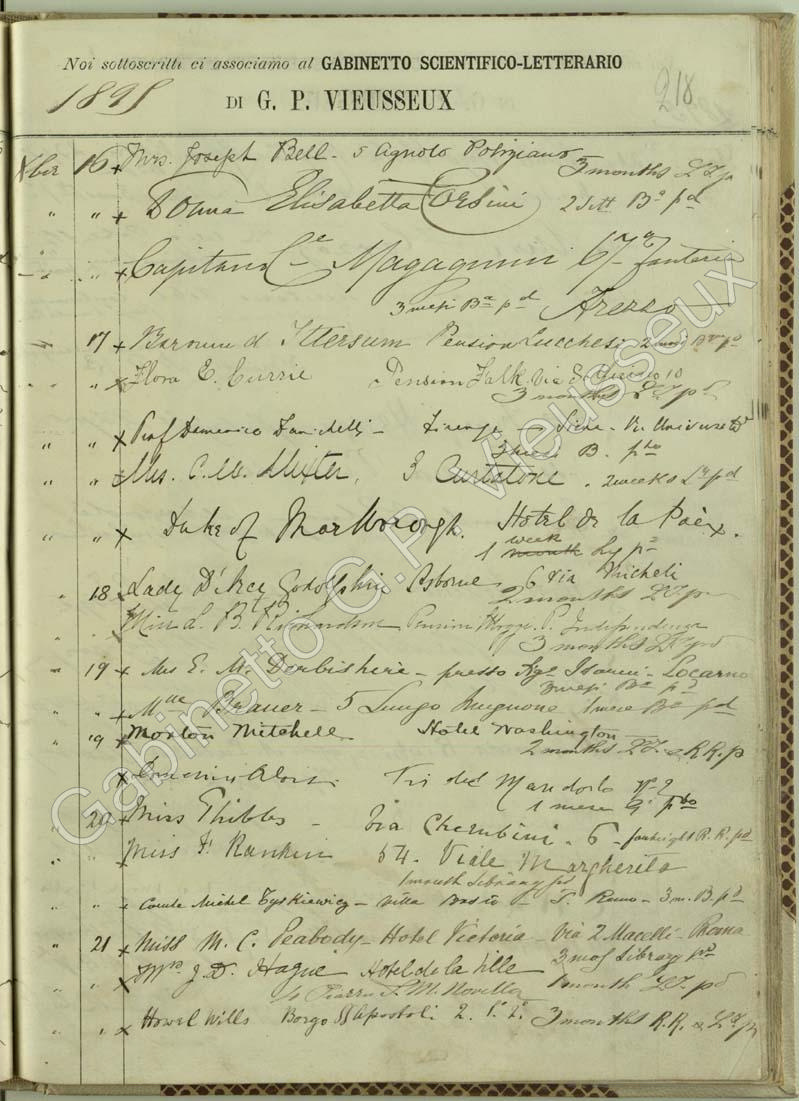 Noi sottoscritti ci associamo al GABINETTO SCIENTIFICO-LETTERARIO
1898 DI G. P. VIEUSSEUX 218
Xbre 16 x Mrs. Joseph Bell - 5 Agnolo Poliziano
3 months L.T. pd
" " x Donna Elisabetta Corsini 2 sett Ba pd
" " x Capitano Magagnini 67 Fanteria
3 mesi Ba pd Arezzo
17 x Baronne d'Ittersum Pension Lucchesi 2 mois pd
" x Flora E. Currie Pension Falk Via 10
3 months L.T. pd
" " x Prof Domenico - Firenze - Siena - Università
3 mesi B. pto
" " x Mrs. C. W. Mixter, 3 Curtatone. 2 weeks Ly pd
" " x Duke of Marlborough. Hotel de la Paix.
week
1 month Ly pd
18 x Lady D'Arcy Godolphin Osborne 6 Via Micheli
2 months L.T. pd
" Miss L. B. Richardson Pension P. Indipendenza
3 months L.T. pd
19 x Mrs E. M. Derbishire - presso - Locarno
3 mesi Ba pd
" x Mlle Brauer - 5 Lungo Mugnone 1 mese Ba pd
19 x Morton Mitchell Hotel Washington
2 months L.T. & R.R. pd
x Via del Mandorlo No 2
1 mese G. pto
20 x Miss Phibbs - Via Cherubini - 6 - fortnight R.R. pd
" " x Miss F. Rankin 54. Viale Margherita
1 month Library pd
" " x Comte Michel Tyskiewicz - Villa - S. Remo - 3 m. B. pd
" 21 x Miss M. C. Peabody - Hotel Victoria - Via 2 Macelli - Roma
3 mos Library pd
" " x Mrs J. D. Hague Hotel de la Ville
1 month L.T. pd
4 Piazza S. M. Novella
" " x Howel Wills Borgo SS Apostoli 2. 1o 2o 3 months R.R. & L.T. pd
Gabinetto G.P. Vieusseux